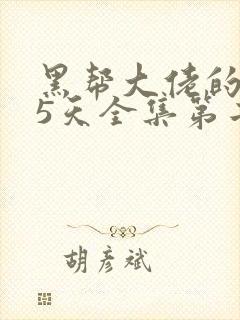 黑帮大佬的
5天全集第
胡彦斌